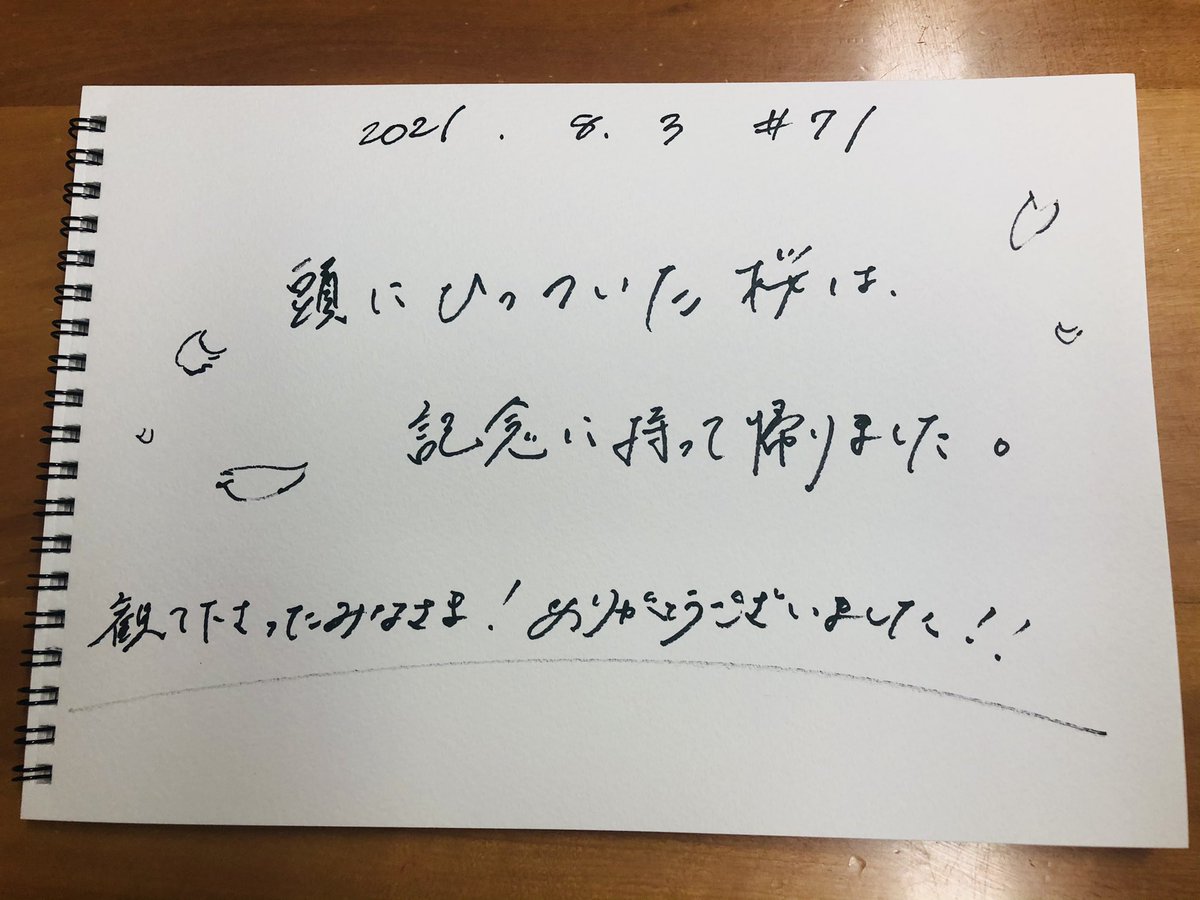 2021. 8. 3 #71
頭にひっついた桜は、
記念に持って帰りました。
観て下さったみなさま!ありがとうございました!!